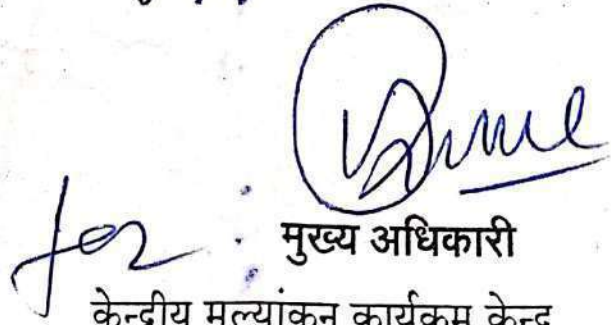 for
मुख्य अधिकारी
केन्द्रीय मूल्यांकन कार्यक्रम केन्द्र